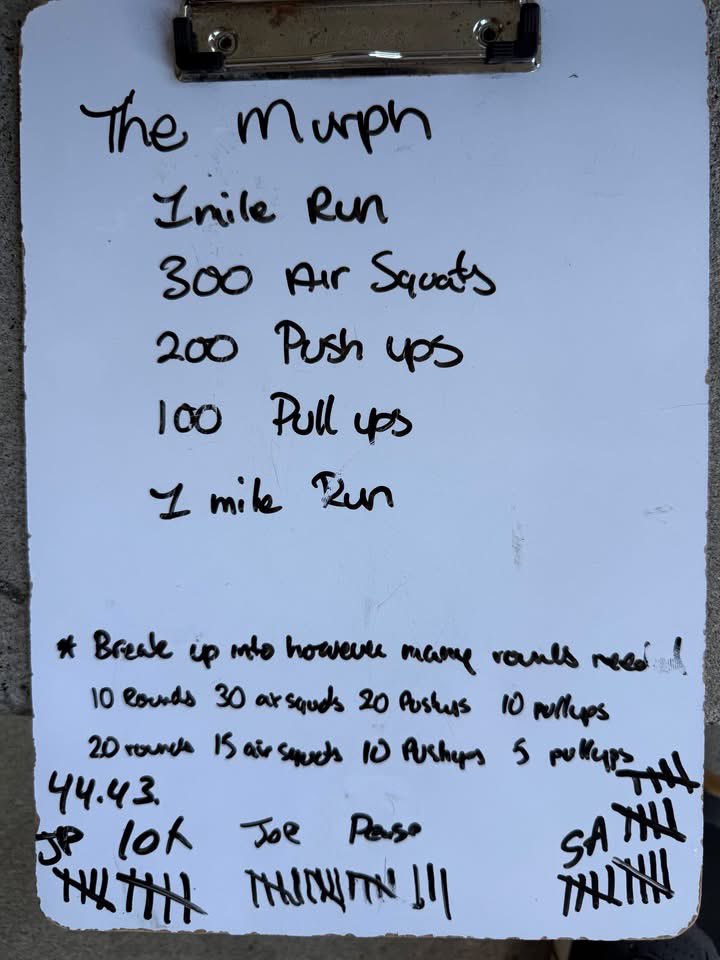 The Murph
1 mile Run
300 Air Squats
200 Push ups
100 Pull ups
1 mile Run
* Break up into however many rounds need!
10 Rounds 30 air squats 20 Pushups 10 pullups
20 rounds 15 air squats 10 Pushups 5 pullups
44.43.
JP 10K Joe SA